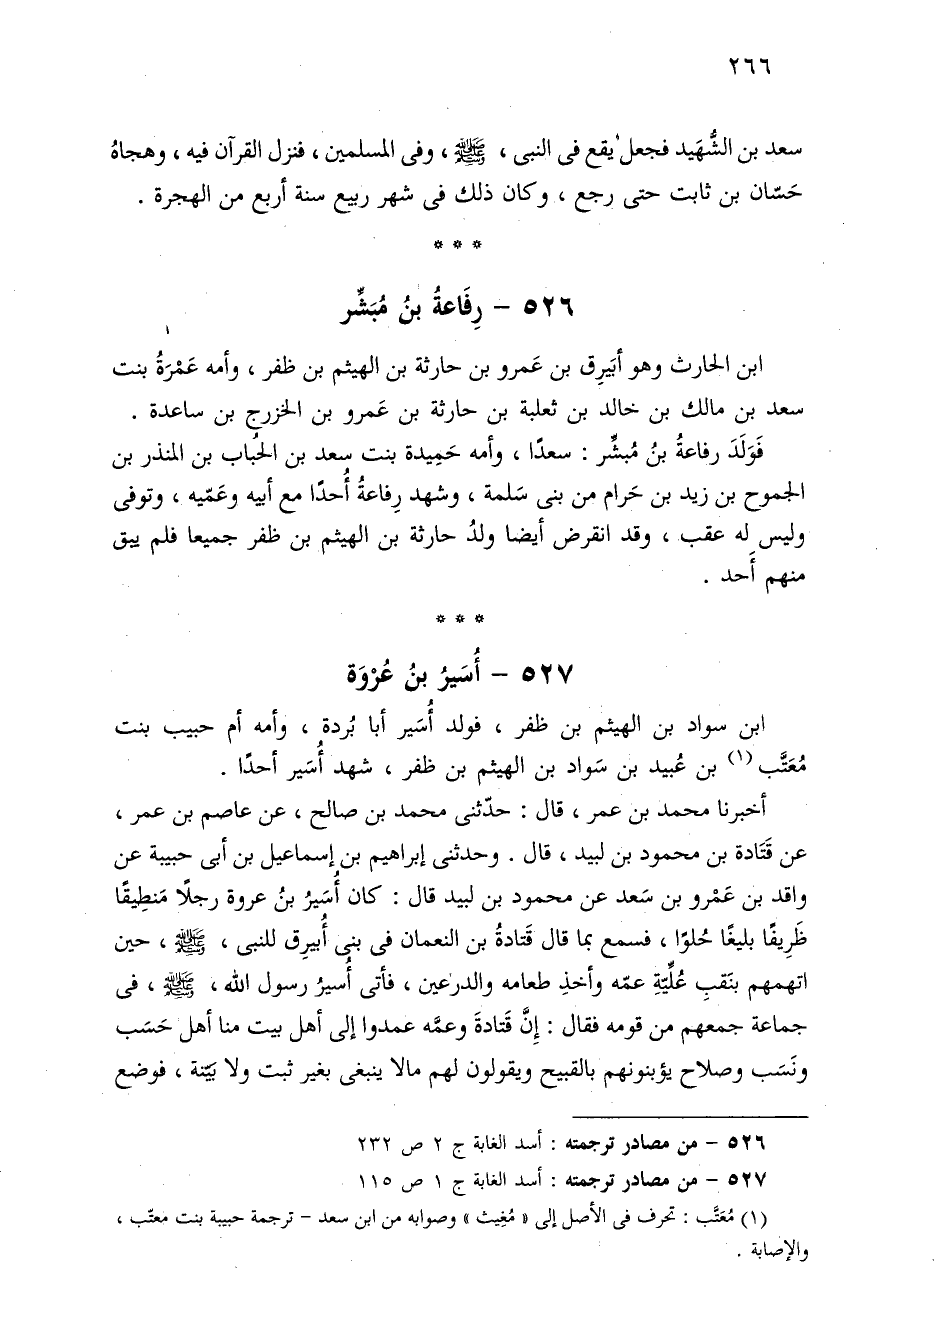 ٢٦٦
سعد بن الشُّهَيد فجعل يقع فى النبى ، ﷺ ، وفى المسلمين ، فنزل القرآن فيه ، وهجاهُ
حَسّان بن ثابت حتى رجع ، وكان ذلك فى شهر ربيع سنة أربع من الهجرة .
* * *
٥٢٦ - رِفَاعةُ بنُ مُبَشِّر
ابن الحارث وهو أُبَيرِق بن عَمرو بن حارثة بن الهيثم بن ظفر ، وأمه عَمْرَةُ بنت
سعد بن مالك بن خالد بن ثعلبة بن حارثة بن عَمرو بن الخزرج بن ساعدة .
فَوَلَدَ رفاعةُ بنُ مُبشِّر : سعدًا ، وأمه حَمِيدة بنت سعد بن الحُباب بن المنذر بن
الجموح بن زيد بن حَرام من بنى سَلمة ، وشهد رِفاعةُ أُحدًا مع أبيه وعَمّيه ، وتوفى
وليس له عقب ، وقد انقرض أيضا ولدُ حارثة بن الهيثم بن ظفر جميعا فلم يبق
منهم أَحد .
* * *
٥٢٧ - أُسَيرُ بنُ عُرْوَة
ابن سواد بن الهيثم بن ظفر ، فولد أُسَير أبا بُردة ، وأمه أم حبيب بنت
مُعَتَّب (١) بن عُبيد بن سَواد بن الهيثم بن ظفر ، شهد أُسَير أحدًا .
أخبرنا محمد بن عمر ، قال : حدّثنى محمد بن صالح ، عن عاصم بن عمر ،
عن قَتَادة بن محمود بن لبيد ، قال . وحدثنى إبراهيم بن إسماعيل بن أبى حبيبة عن
واقد بن عَمْرو بن سَعد عن محمود بن لبيد قال : كان أُسَيرُ بنُ عروة رجلًا مَنطِيقًا
ظَرِيفًا بليغًا حُلوًا ، فسمع بما قال قَتادةُ بن النعمان فى بنى أُبيرِق للنبى ، ﷺ ، حين
اتهمهم بنَقبِ عُلِّيَّةِ عمّه وأخذِ طعامه والدرعين ، فأتى أُسيرُ رسول الله ، ﷺ ، فى
جماعة جمعهم من قومه فقال : إنَّ قَتادةَ وعمَّه عمدوا إلى أهل بيت منا أهل حَسَب
ونَسَب وصلاح يؤبنونهم بالقبيح ويقولون لهم مالا ينبغى بغير ثبت ولا بَيّنة ، فوضع
٥٢٦ - من مصادر ترجمته : أسد الغابة ج ٢ ص ٢٣٢
٥٢٧ - من مصادر ترجمته : أسد الغابة ج ١ ص ١١٥
(١) مُعَتَّب : تحرف فى الأصل إلى « مُغِيث » وصوابه من ابن سعد - ترجمة حبيبة بنت معتّب ،
والإصابة .